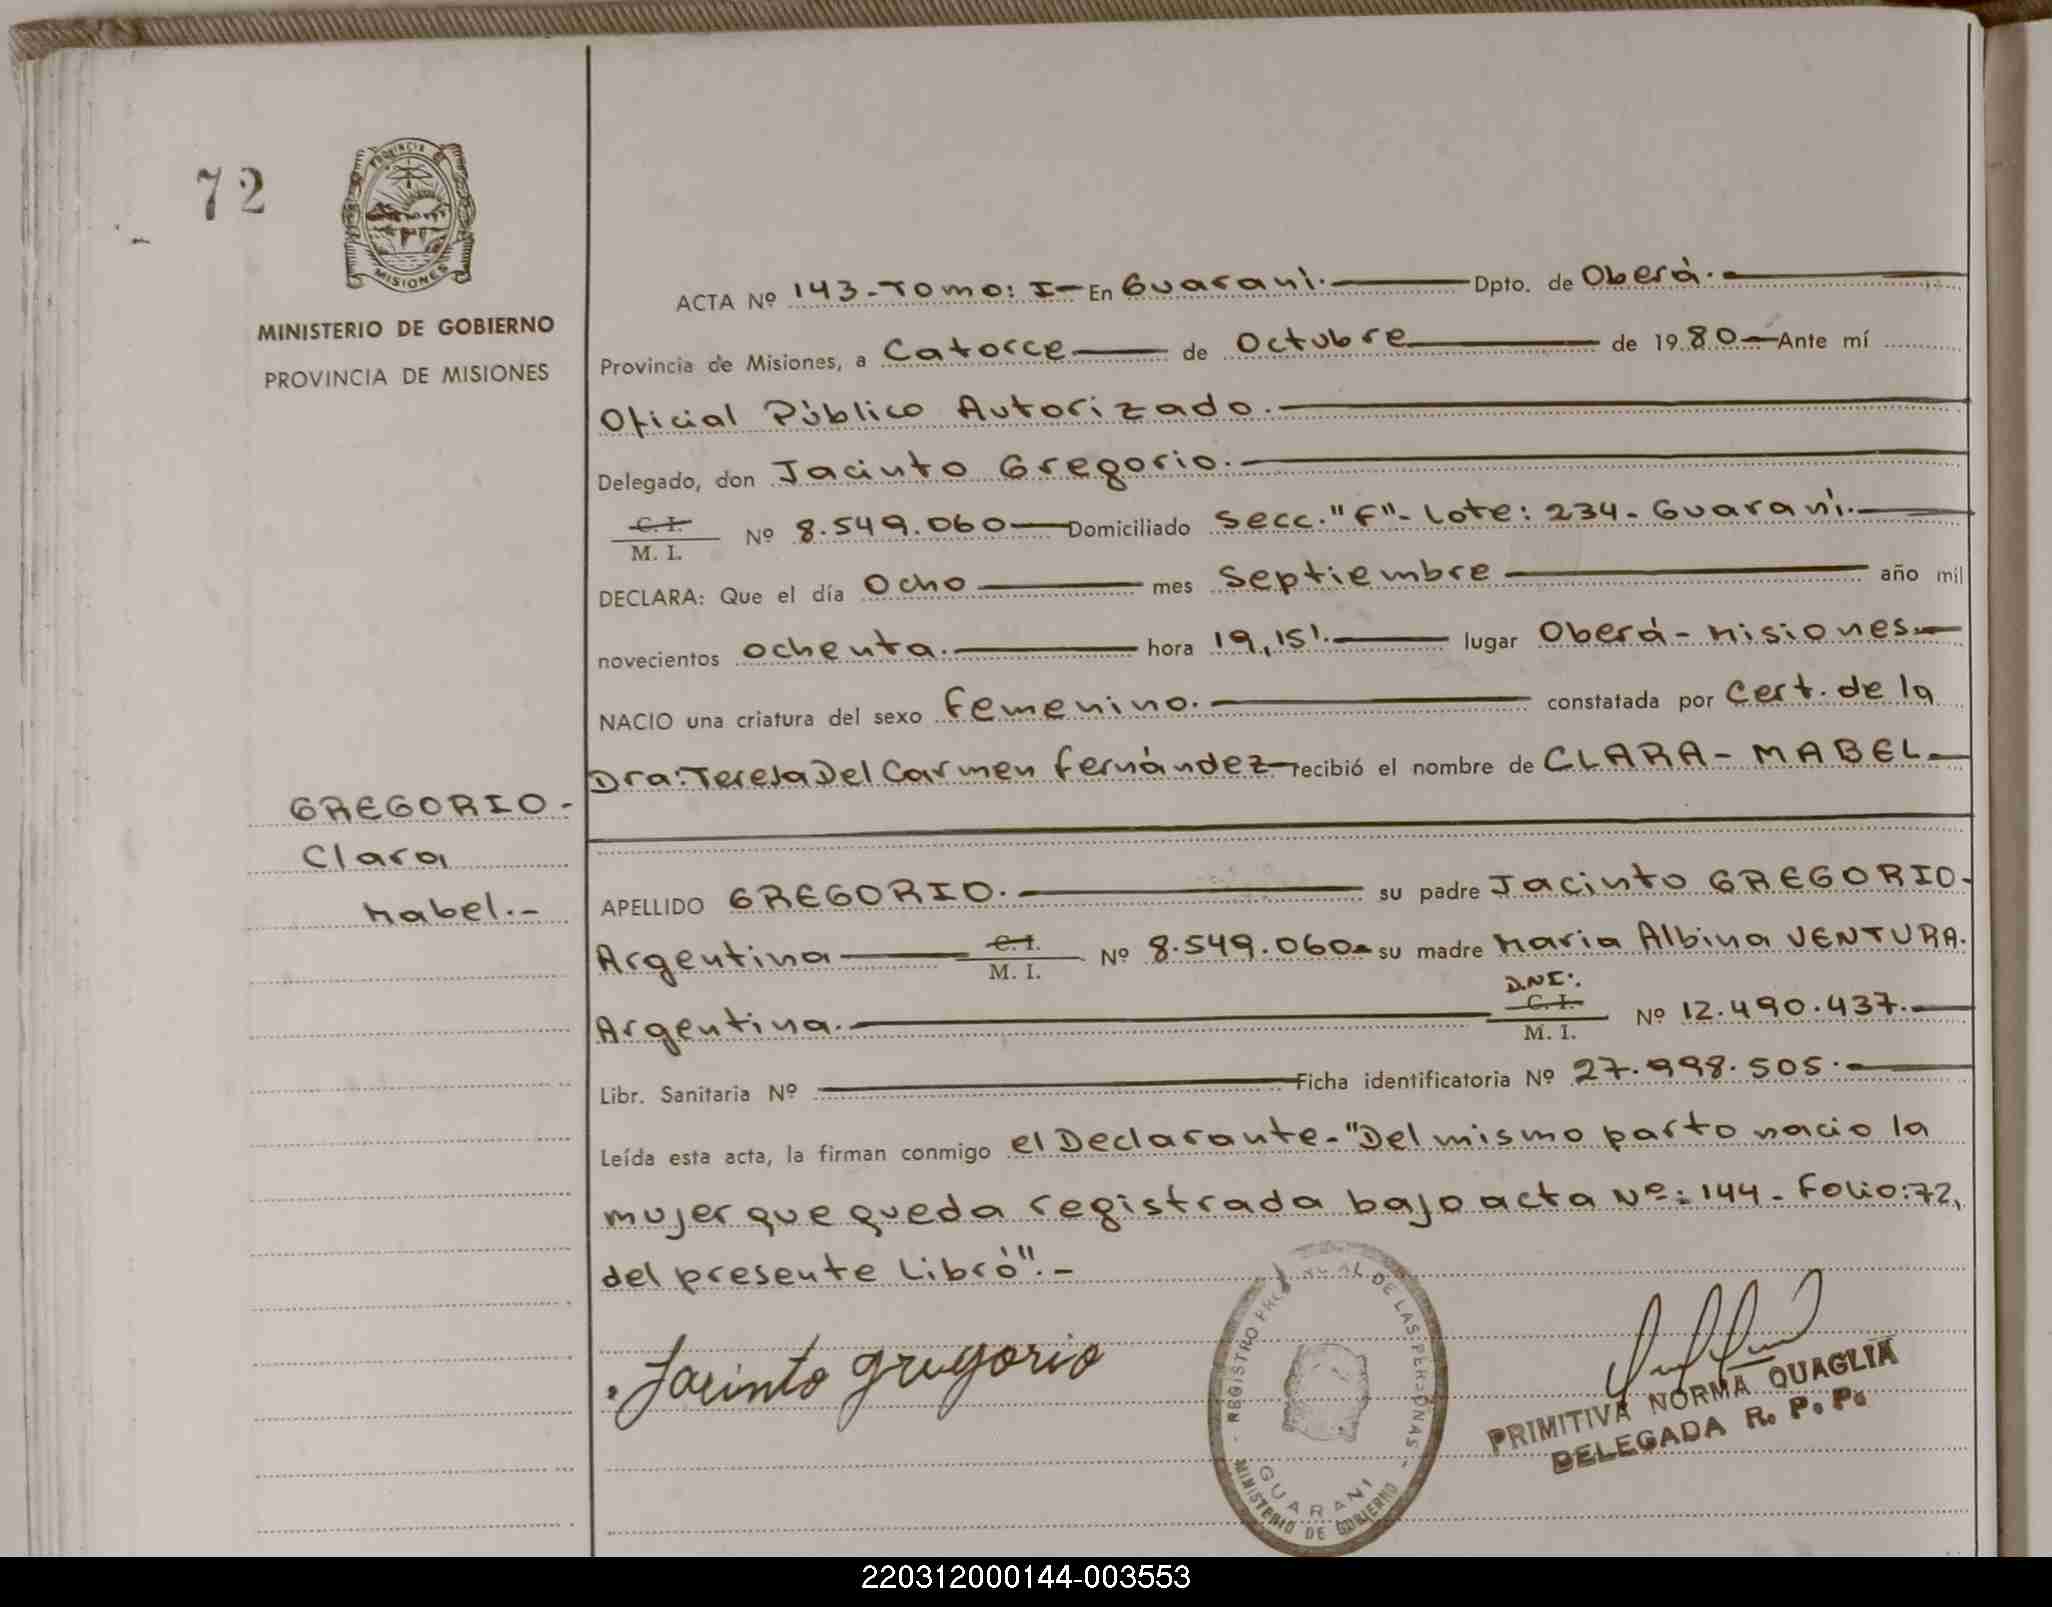 72
PROVINCIA DE
MISIONES
MINISTERIO DE GOBIERNO
PROVINCIA DE MISIONES
GREGORIO.-
Clara
Mabel.-
ACTA Nº 143-Tomo: I- En Guaraní. Dpto. de Oberá.
Provincia de Misiones, a Catorce de Octubre de 1980 Ante mí
Oficial Público Autorizado.
Delegado, don Jacinto Gregorio.
C. I.
M. I. Nº 8.549.060 Domiciliado Secc. "F"- Lote: 234- Guaraní.
DECLARA: Que el día Ocho mes Septiembre año mil
novecientos ochenta. hora 19,15'. lugar Oberá- Misiones.
NACIO una criatura del sexo femenino. constatada por Cert. de la
Dra: Teresa Del Carmen Fernández recibió el nombre de CLARA- MABEL
APELLIDO GREGORIO. su padre Jacinto GREGORIO.
Argentina C. I. M. I. Nº 8.549.060 su madre Maria Albina VENTURA.
D.N.I:
Argentina. C. I. M. I. Nº 12.490.437.
Libr. Sanitaria Nº Ficha identificatoria Nº 27.998.505.
Leída esta acta, la firman conmigo el Declarante-"Del mismo parto nacio la
mujer que queda registrada bajo acta Nº: 144- Folio: 72,
del presente Libro".-
Jacinto gregorio
REGISTRO DE LAS PERSONAS
GUARANI
MINISTERIO DE GOBIERNO
PRIMITIVA NORMA QUAGLIA
DELEGADA R. P. P.
220312000144-003553